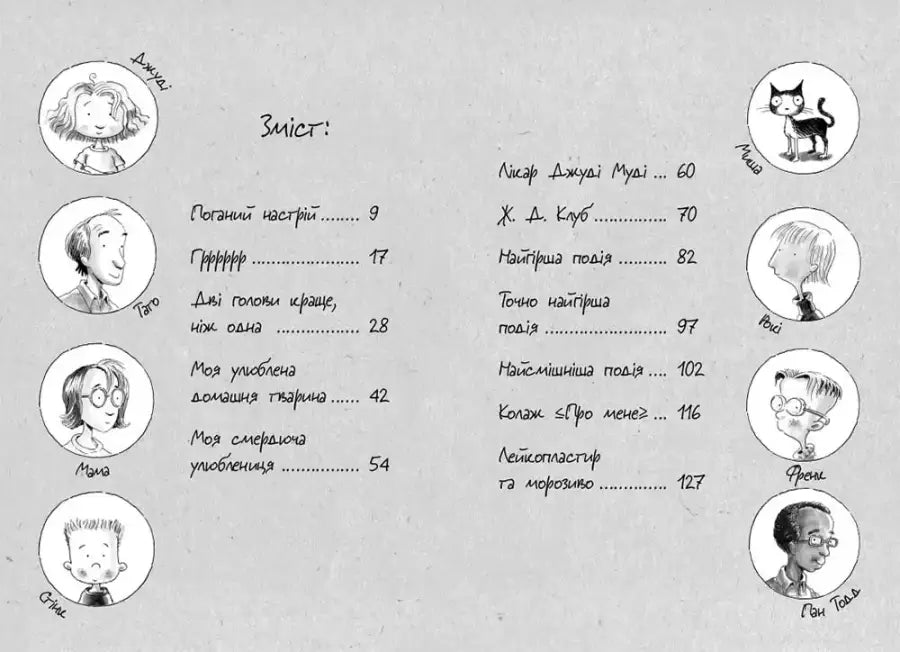 Джуді
Тато
Мама
Стінк
Зміст:
Поганий настрій........ 9
Грррррр .................... 17
Дві голови краще,
ніж одна ............... 28
Моя улюблена
домашня тварина...... 42
Моя смердюча
улюблениця .............. 54
Лікар Джуді Муді ... 60
Ж. Д. Клуб.............. 70
Найгірша подія.......... 82
Точно найгірша
подія...................... 97
Найсмішніша подія.... 102
Колаж «Про мене» ... 116
Лейкопластир
та морозиво ............. 127
Миша
Рокі
Френк
Пан Тодд